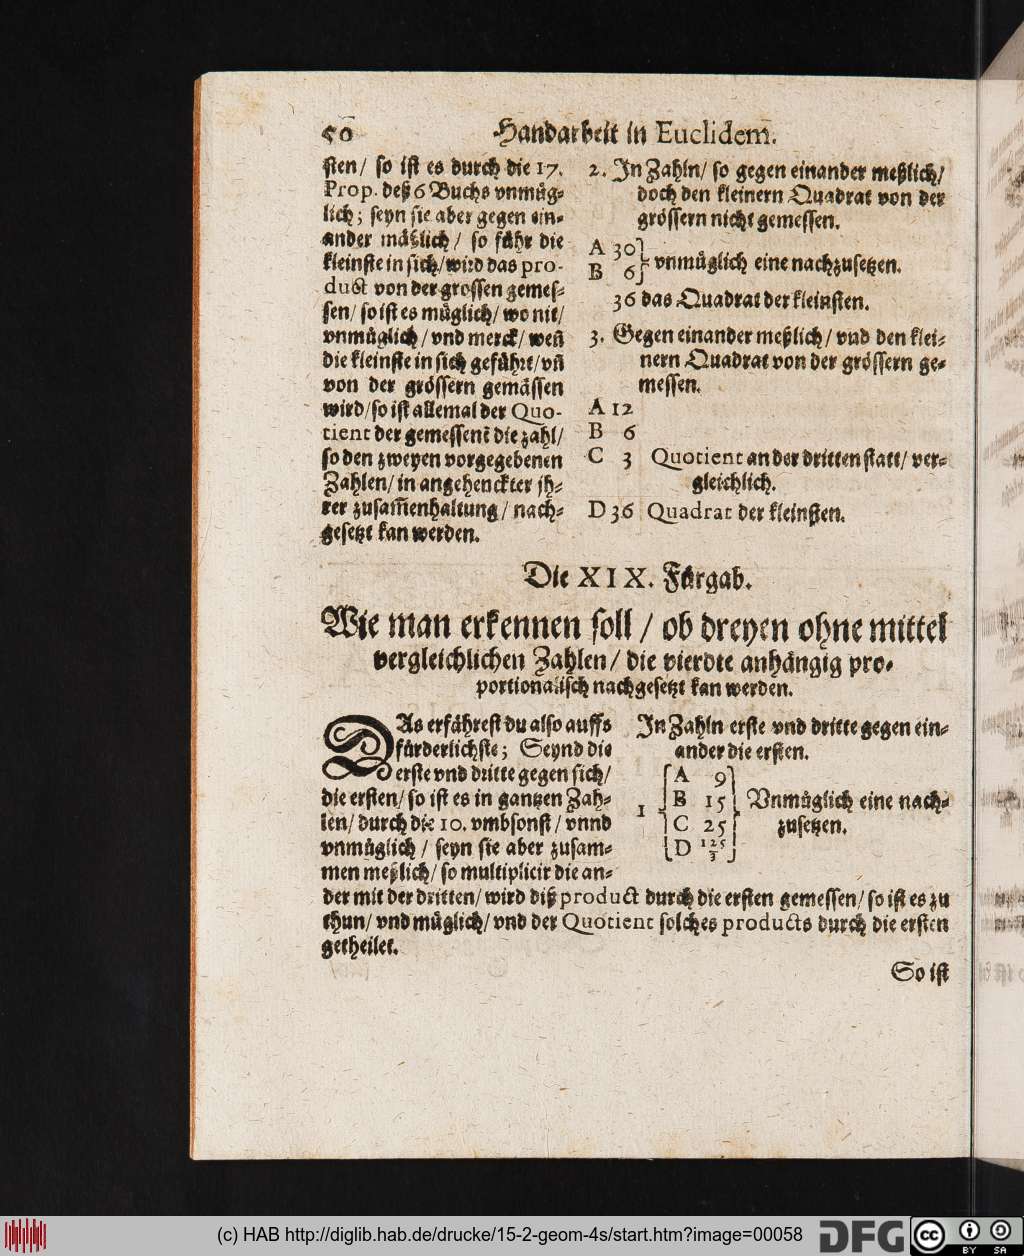 50 Handarbeit in Euclidem.
sten/ so ist es durch die 17.
Prop. deß 6 Buchs vnmüg-
lich; seyn sie aber gegen ein-
ander mäßlich/ so führ die
kleinste in sich/ wird das pro-
duct von der grossen gemes-
sen/ so ist es müglich/ wo nit/
vnmüglich/ vnd merck/ weñ
die kleinste in sich geführt/ vñ
von der grössern gemässen
wird/ so ist allemal der Quo-
tient der gemessenẽ die zahl/
so den zweyen vorgegebenen
Zahlen/ in angehenckter jh-
rer zusam̃enhaltung/ nach-
gesetzt kan werden.
2. In Zahln/ so gegen einander meßlich/
doch den kleinern Quadrat von der
grössern nicht gemessen.
A 30
B 6
vnmüglich eine nachzusetzen.
36 das Quadrat der kleinsten.
3. Gegen einander meßlich/ vnd den klei-
nern Quadrat von der grössern ge-
messen.
A 12
B 6
C 3 Quotient an der dritten statt/ ver-
gleichlich.
D 36 Quadrat der kleinsten.
Die XIX. Fürgab.
Wie man erkennen soll/ ob dreyen ohne mittel
vergleichlichen Zahlen/ die vierdte anhängig pro-
portionalisch nachgesetzt kan werden.
DAs erfährest du also auffs
fürderlichste; Seynd die
erste vnd dritte gegen sich/
die ersten/ so ist es in gantzen Zah-
len/ durch die 10. vmbsonst/ vnnd
vnmüglich/ seyn sie aber zusam-
men meßlich/ so multiplicir die an-
der mit der dritten/ wird diß product durch die ersten gemessen/ so ist es zu
thun/ vnd müglich/ vnd der Quotient solches products durch die ersten
getheilet.
In Zahln erste vnd dritte gegen ein-
ander die ersten.
1
A 9
B 15
C 25
D 125/3
Vnmüglich eine nach-
zusetzen.
So ist
(c) HAB http://diglib.hab.de/drucke/15-2-geom-4s/start.htm?image=00058
DFG
cc BY SA